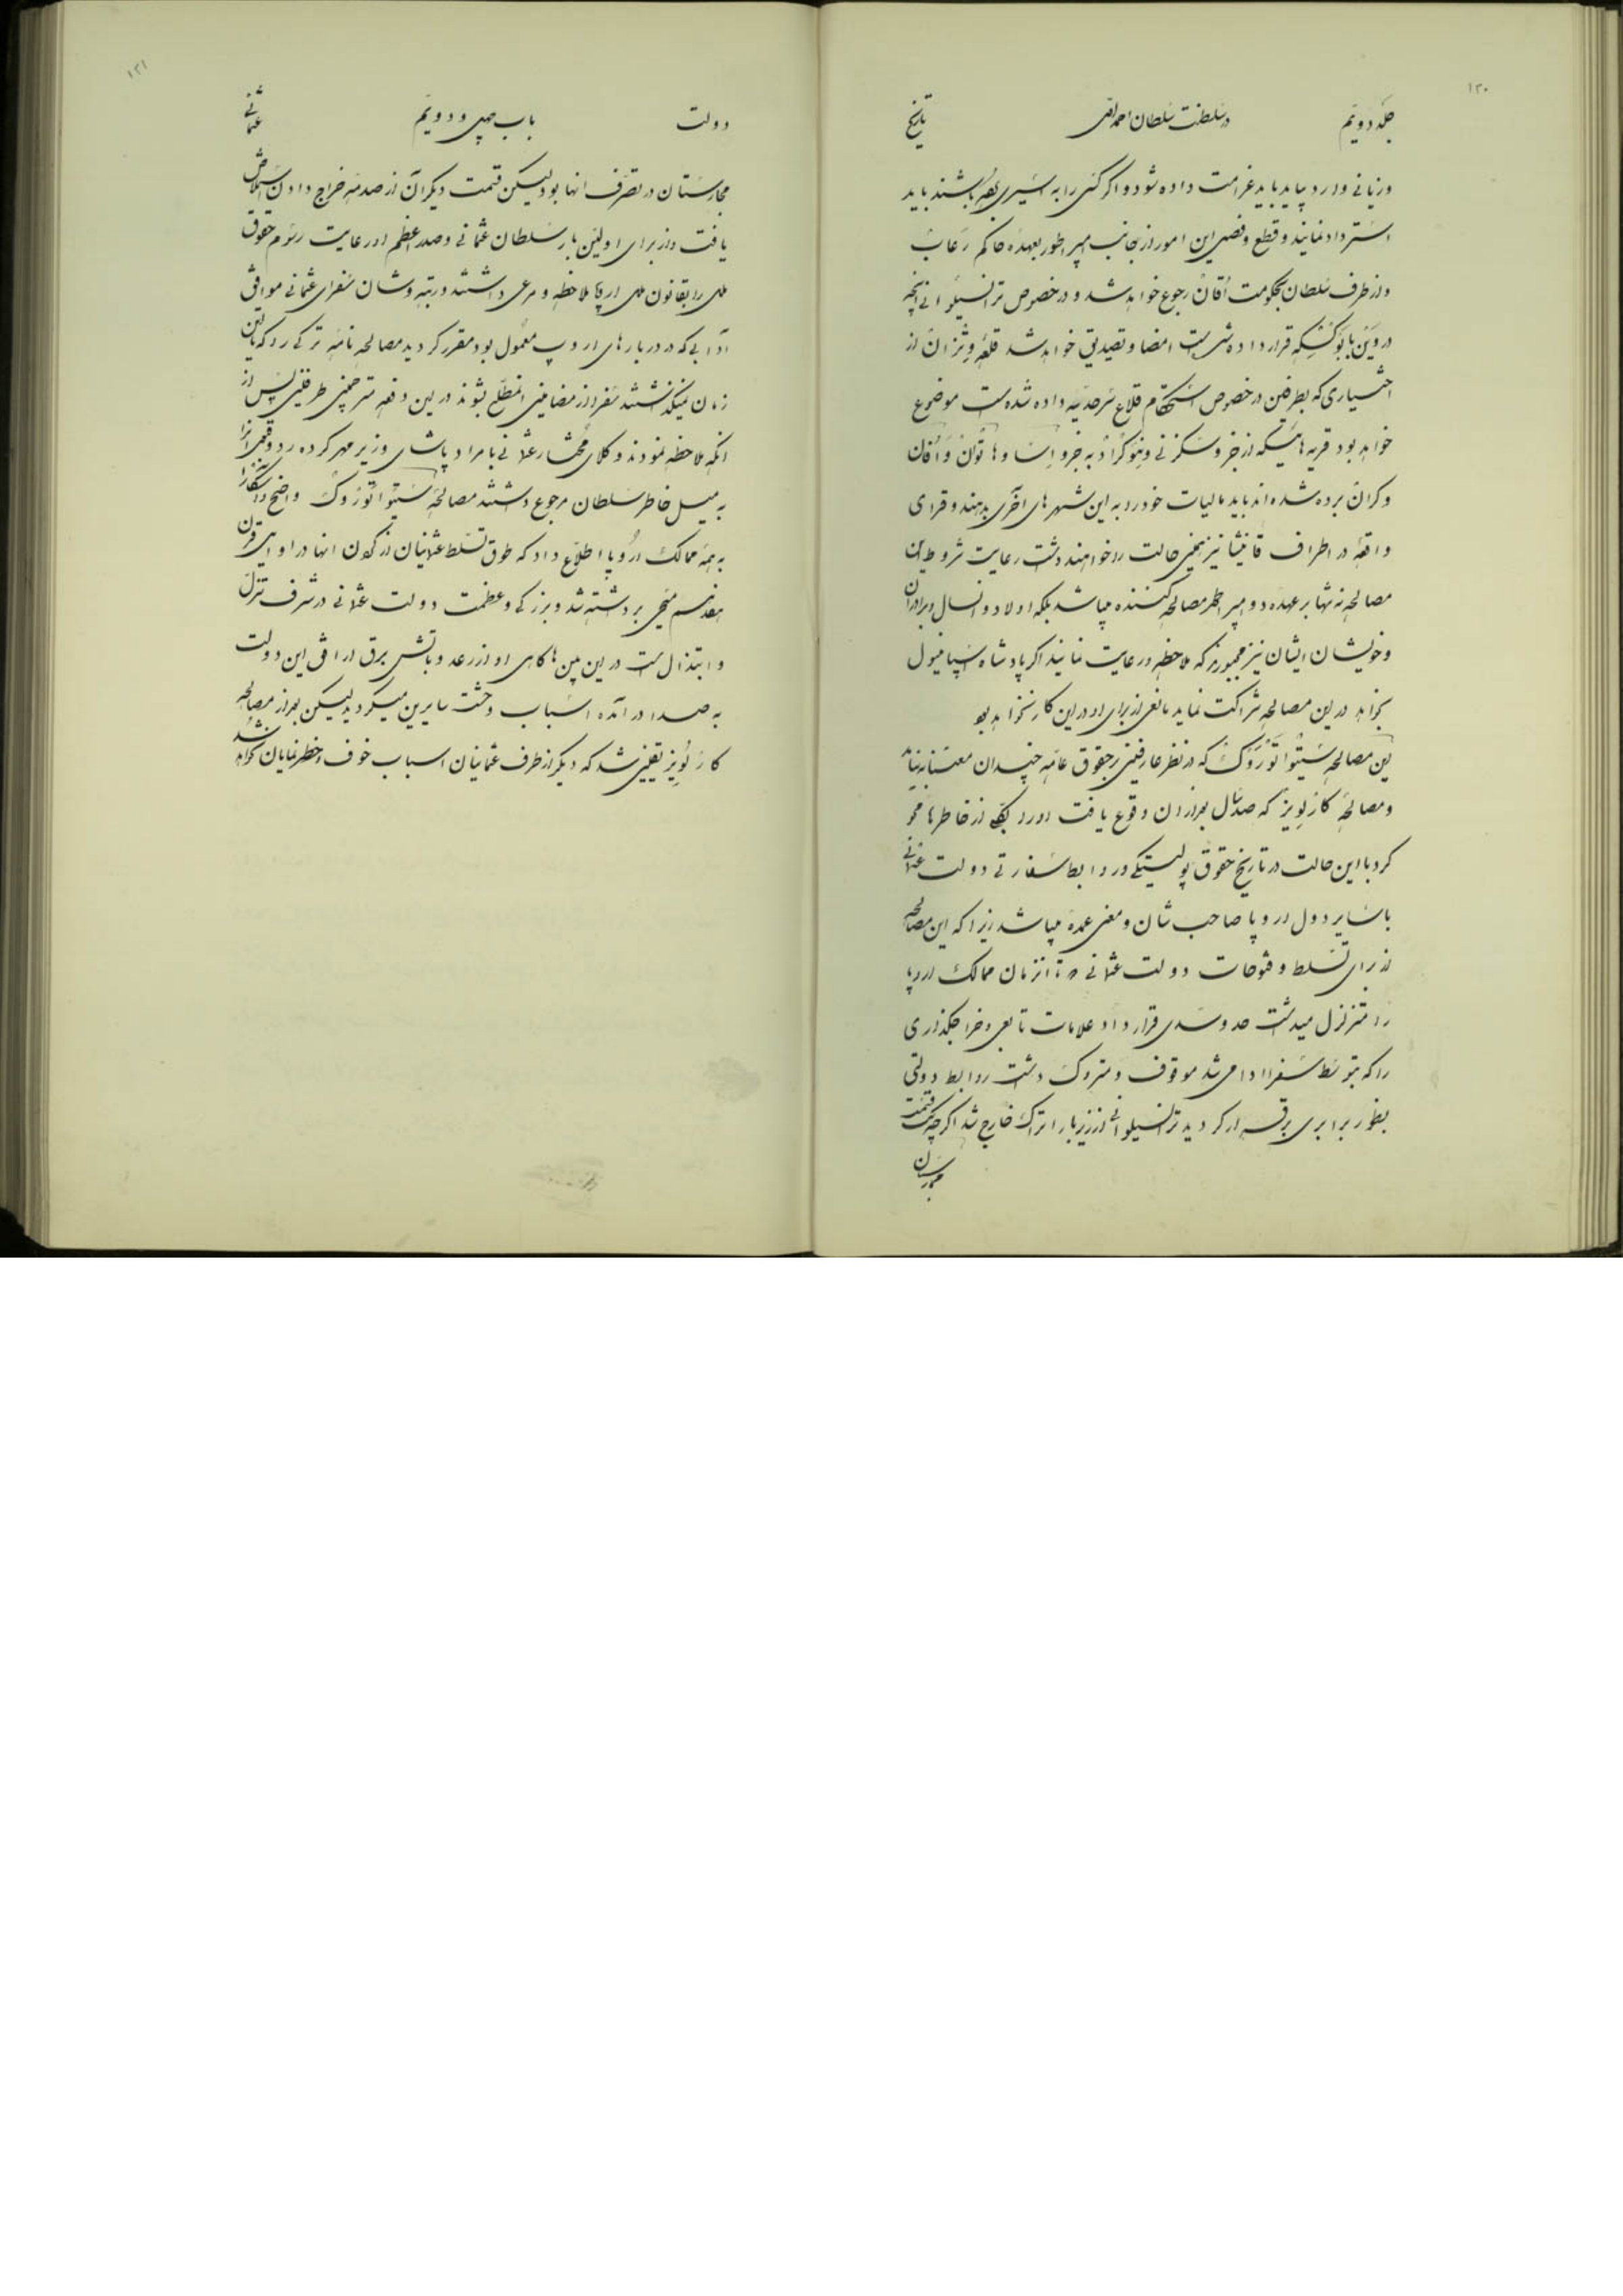 ۱۲۰
جلد دویم در سلطنت سلطان احمد اول تاریخ
و زیانی وارد بیاید باید غرامت داده شود و اگر کسی را به اسیری برده باشند باید
استرداد نمایند و قطع و فصل این امور از جانب امپراطور بعهده حاکم رعاب
و از طرف سلطان بحکومت اقان رجوع خواهد شد و در خصوص ترانسیلوانی آنچه
در وین با بوکسکه قرارداده شده است امضا و تصدیق خواهد شد قلعه و تزان از
اختیاری که بطرفین در خصوص استحکام قلاع سرحدیه داده شده است موضوع
خواهد بود قریه هائیکه از جزو سکزنی و نوگراد به جزو اسا و هاتوان و اقان
و کران برده شده اند باید مالیات خود را به این شهرهای آخری بدهند و قرای
واقعه در اطراف قانیشا نیز همین حالت را خواهند داشت رعایت شروط این
مصالحه نه تنها بر عهده دو امپراطور مصالحه کننده میباشد بلکه اولاد و انسال و برادران
و خویشان ایشان نیز مجبورند که ملاحظه و رعایت نمایند اگر پادشاه اسپانیول
بخواهد در این مصالحه شراکت نماید مانعی از برای او در این کار نخواهد بود
این مصالحه سیتواتوروک که در نظر عارفین بر حقوق عامه چندان معتنا به نیاید
و مصالحه کارلویز که صد سال بعد از آن وقوع یافت او را از خاطرها محو
کرد با این حالت در تاریخ حقوق پولیتیکی و روابط سفارتی دولت عثمانی
با سایر دول اروپا صاحب شان و معنی عمده میباشد زیرا که این مصالحه
از برای تسلط و فتوحات دولت عثمانی که تا آنزمان ممالک اروپا
را متزلزل میداشت حد و سدی قرار داد علامات تابعی و خراجگذاری
را که بتوسط سفرا ادا می شد موقوف و متروک داشت روابط دولتی
بطور برابری برقرار گردید ترانسیلوانی از زیر بار اتراک خارج شد اگرچه یک قسمت
مجارستان
۱۲۱
دولت باب چهل و دویم عثمانی
مجارستان در تصرف آنها بود لیکن قسمت دیگر آن از صدمه خراج دادن استخلاص
یافت و از برای اولین بار سلطان عثمانی و صدر اعظم او رعایت رسوم حقوق
ملل را بقانون ملل اروپا ملاحظه و مرعی داشتند و رتبه و شان سفرای عثمانی موافق
آدابی که در دربارهای اروپ معمول بود مقرر گردید مصالحه نامه ترکی را که تا این
زمان نمیگذاشتند سفرا از مضامین آن مطلع بشوند در این دفعه مترجمین طرفین پس از
آنکه ملاحظه نمودند وکلای مختار عثمانی با مراد پاشای وزیر مهر کرده رد و قبول آنرا
به میل خاطر سلطان مرجوع داشتند مصالحه سیتواتوروک واضح و آشکارا
به همه ممالک اروپا اطلاع داد که طوق تسلط عثمانیان از گردن آنها در اوایل قرن
هفدهم مسیحی برداشته شد و بزرگی و عظمت دولت عثمانی در شرف تنزل
و ابتذال است در این بین ها گاهی آواز رعد و تابش برق در افق این دولت
به صدا در آمده اسباب وحشت سایرین میگردید لیکن بعد از مصالحه
کارلویز یقین شد که دیگر از طرف عثمانیان اسباب خوف و خطر نمایان نخواهد شد